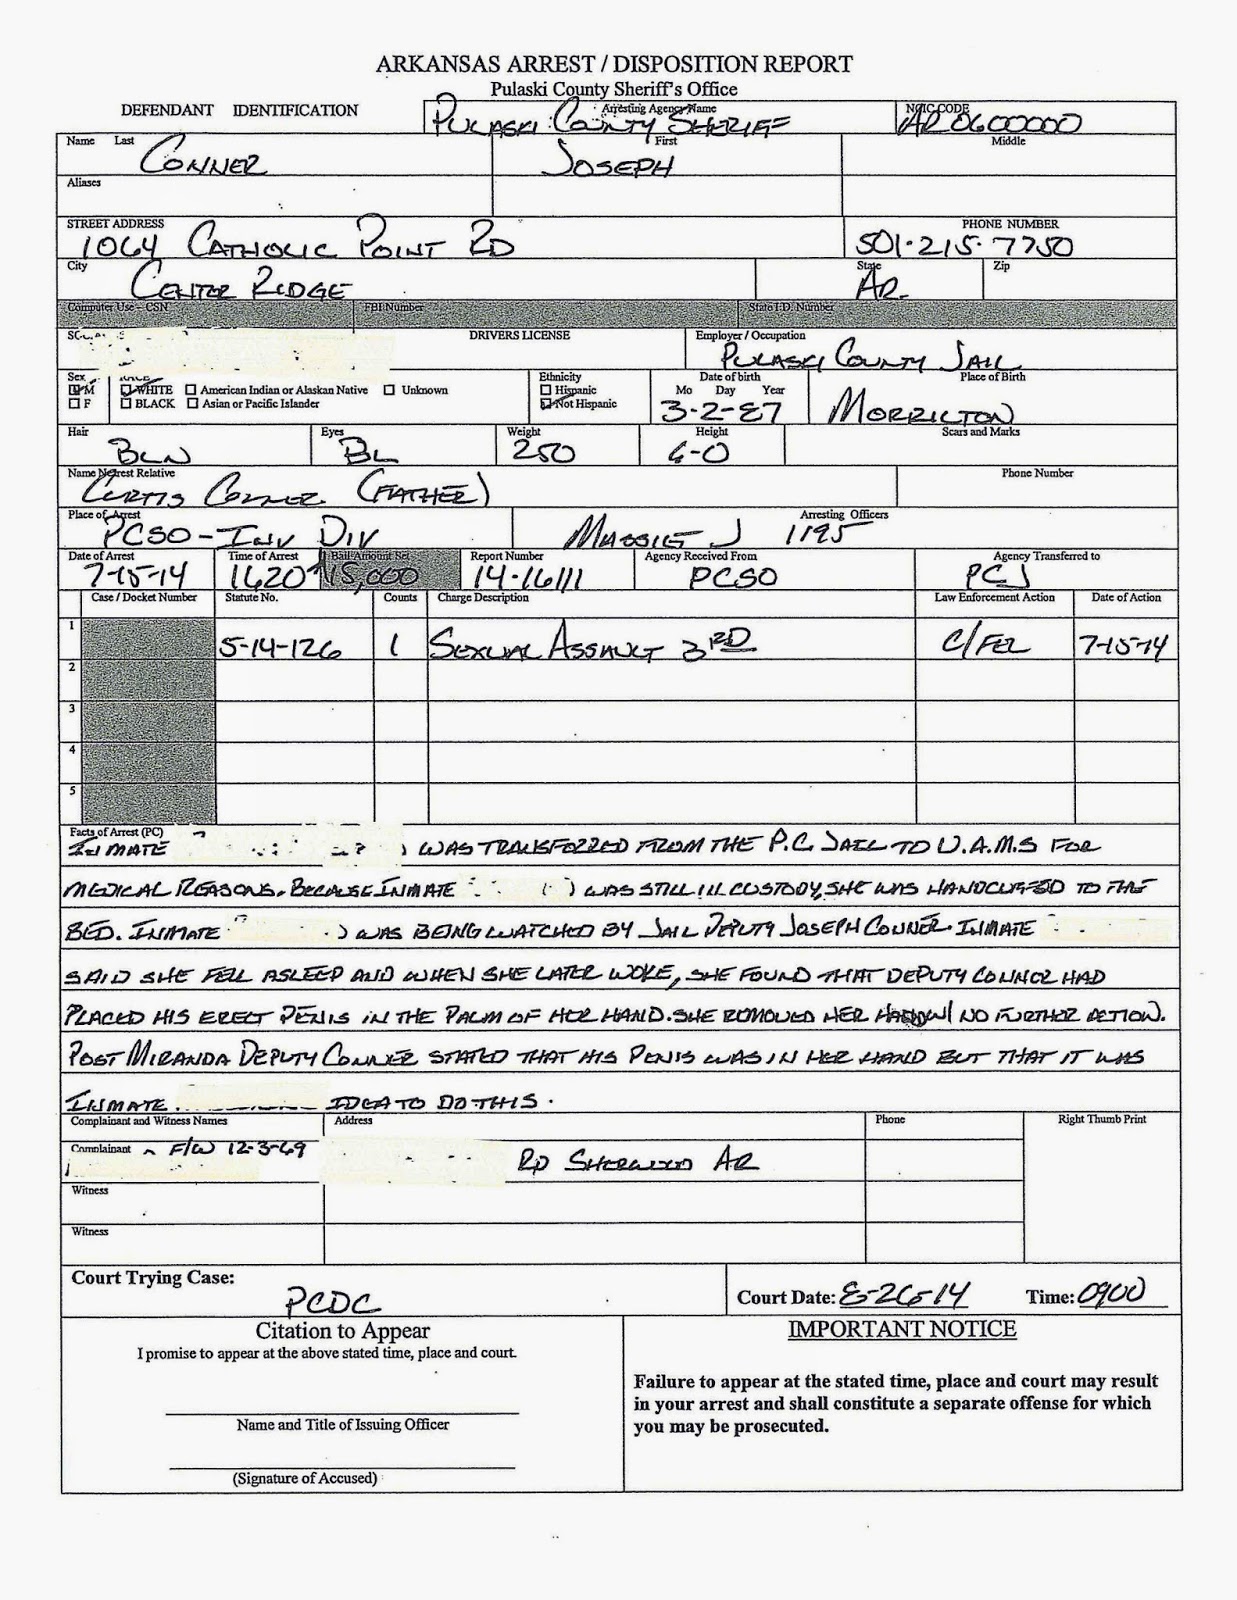 ARKANSAS ARREST / DISPOSITION REPORT
Pulaski County Sheriff's Office
DEFENDANT IDENTIFICATION
Arresting Agency Name
PULASKI COUNTY SHERIFF
NCIC CODE
AR0600000
Name Last
CONNER
First
JOSEPH
Middle
Aliases
STREET ADDRESS
1064 CATHOLIC POINT RD
PHONE NUMBER
501-215-7750
City
CENTER RIDGE
State
AR.
Zip
Computer Use - CSN
FBI Number
State I.D. Number
DRIVERS LICENSE
Employer / Occupation
PULASKI COUNTY JAIL
Sex M F
RACE WHITE American Indian or Alaskan Native Unknown
BLACK Asian or Pacific Islander
Ethnicity
Hispanic
Not Hispanic
Date of birth
Mo Day Year
3-2-87
Place of Birth
MORRILTON
Hair
BLN
Eyes
BL
Weight
250
Height
6-0
Scars and Marks
Name Nearest Relative
CURTIS CONNER (FATHER)
Phone Number
Place of Arrest
PCSO-INV DIV
Arresting Officers
MASSIE J 1195
Date of Arrest
7-15-14
Time of Arrest
1620
Bail Amount Set
15,000
Report Number
14-16111
Agency Received From
PCSO
Agency Transferred to
PCJ
Case / Docket Number Statute No. Counts Charge Description Law Enforcement Action Date of Action
1 5-14-126 1 SEXUAL ASSAULT 3RD C/FEL 7-15-14
2
3
4
5
Facts of Arrest (PC)
INMATE ) WAS TRANSFERRED FROM THE P.C. JAIL TO U.A.M.S FOR
MEDICAL REASONS. BECAUSE INMATE ) WAS STILL IN CUSTODY, SHE WAS HANDCUFFED TO THE
BED. INMATE ) WAS BEING WATCHED BY JAIL DEPUTY JOSEPH CONNER. INMATE
SAID SHE FELL ASLEEP AND WHEN SHE LATER WOKE, SHE FOUND THAT DEPUTY CONNER HAD
PLACED HIS ERECT PENIS IN THE PALM OF HER HAND. SHE REMOVED HER HAND (NO FURTHER ACTION).
POST MIRANDA DEPUTY CONNER STATED THAT HIS PENIS WAS IN HER HAND BUT THAT IT WAS
INMATE IDEA TO DO THIS.
Complainant and Witness Names Address Phone Right Thumb Print
Complainant F/W 12-3-69 RD SHERWOOD AR
Witness
Witness
Court Trying Case:
PCDC
Court Date: 8-26-14 Time: 0900
Citation to Appear
I promise to appear at the above stated time, place and court.
Name and Title of Issuing Officer
(Signature of Accused)
IMPORTANT NOTICE
Failure to appear at the stated time, place and court may result
in your arrest and shall constitute a separate offense for which
you may be prosecuted.